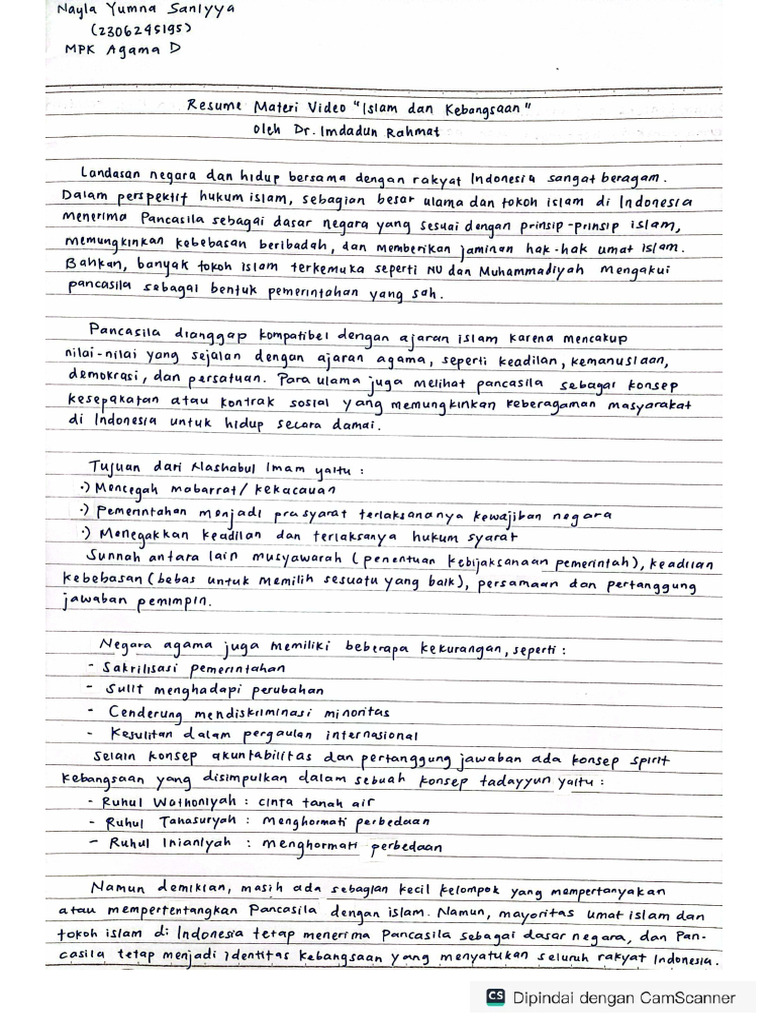 Nayla Yumna Saniyya
(2306245195)
MPK Agama D
Resume Materi Video "Islam dan Kebangsaan"
oleh Dr. Imdadun Rahmat
Landasan negara dan hidup bersama dengan rakyat Indonesia sangat beragam.
Dalam perspektif hukum islam, sebagian besar ulama dan tokoh islam di Indonesia
menerima Pancasila sebagai dasar negara yang sesuai dengan prinsip-prinsip islam,
memungkinkan kebebasan beribadah, dan memberikan jaminan hak-hak umat islam.
Bahkan, banyak tokoh islam terkemuka seperti NU dan Muhammadiyah mengakui
pancasila sebagai bentuk pemerintahan yang sah.
Pancasila dianggap kompatibel dengan ajaran islam karena mencakup
nilai-nilai yang sejalan dengan ajaran agama, seperti keadilan, kemanusiaan,
demokrasi, dan persatuan. Para ulama juga melihat pancasila sebagai konsep
kesepakatan atau kontrak sosial yang memungkinkan keberagaman masyarakat
di Indonesia untuk hidup secara damai.
Tujuan dari Nashabul Imam yaitu :
·) Mencegah mabarrat/ kekacauan
·) Pemerintahan menjadi prasyarat terlaksananya kewajiban negara
·) Menegakkan keadilan dan terlaksanya hukum syarat
Sunnah antara lain musyawarah (penentuan kebijaksanaan pemerintah), keadilan
kebebasan (bebas untuk memilih sesuatu yang baik), persamaan dan pertanggung
jawaban pemimpin.
Negara agama juga memiliki beberapa kekurangan, seperti :
- Sakrilisasi pemerintahan
- Sulit menghadapi perubahan
- Cenderung mendiskriminasi minoritas
- Kesulitan dalam pergaulan internasional
Selain konsep akuntabilitas dan pertanggung jawaban ada konsep spirit
kebangsaan yang disimpulkan dalam sebuah konsep tadayyun yaitu :
- Ruhul Wathoniyah : cinta tanah air
- Ruhul Tahasuryah : menghormati perbedaan
- Ruhul Inianiyah : menghormati perbedaan
Namun demikian, masih ada sebagian kecil kelompok yang mempertanyakan
atau mempertentangkan Pancasila dengan islam. Namun, mayoritas umat islam dan
tokoh islam di Indonesia tetap menerima Pancasila sebagai dasar negara, dan Pan-
casila tetap menjadi identitas kebangsaan yang menyatukan seluruh rakyat Indonesia.
CS Dipindai dengan CamScanner